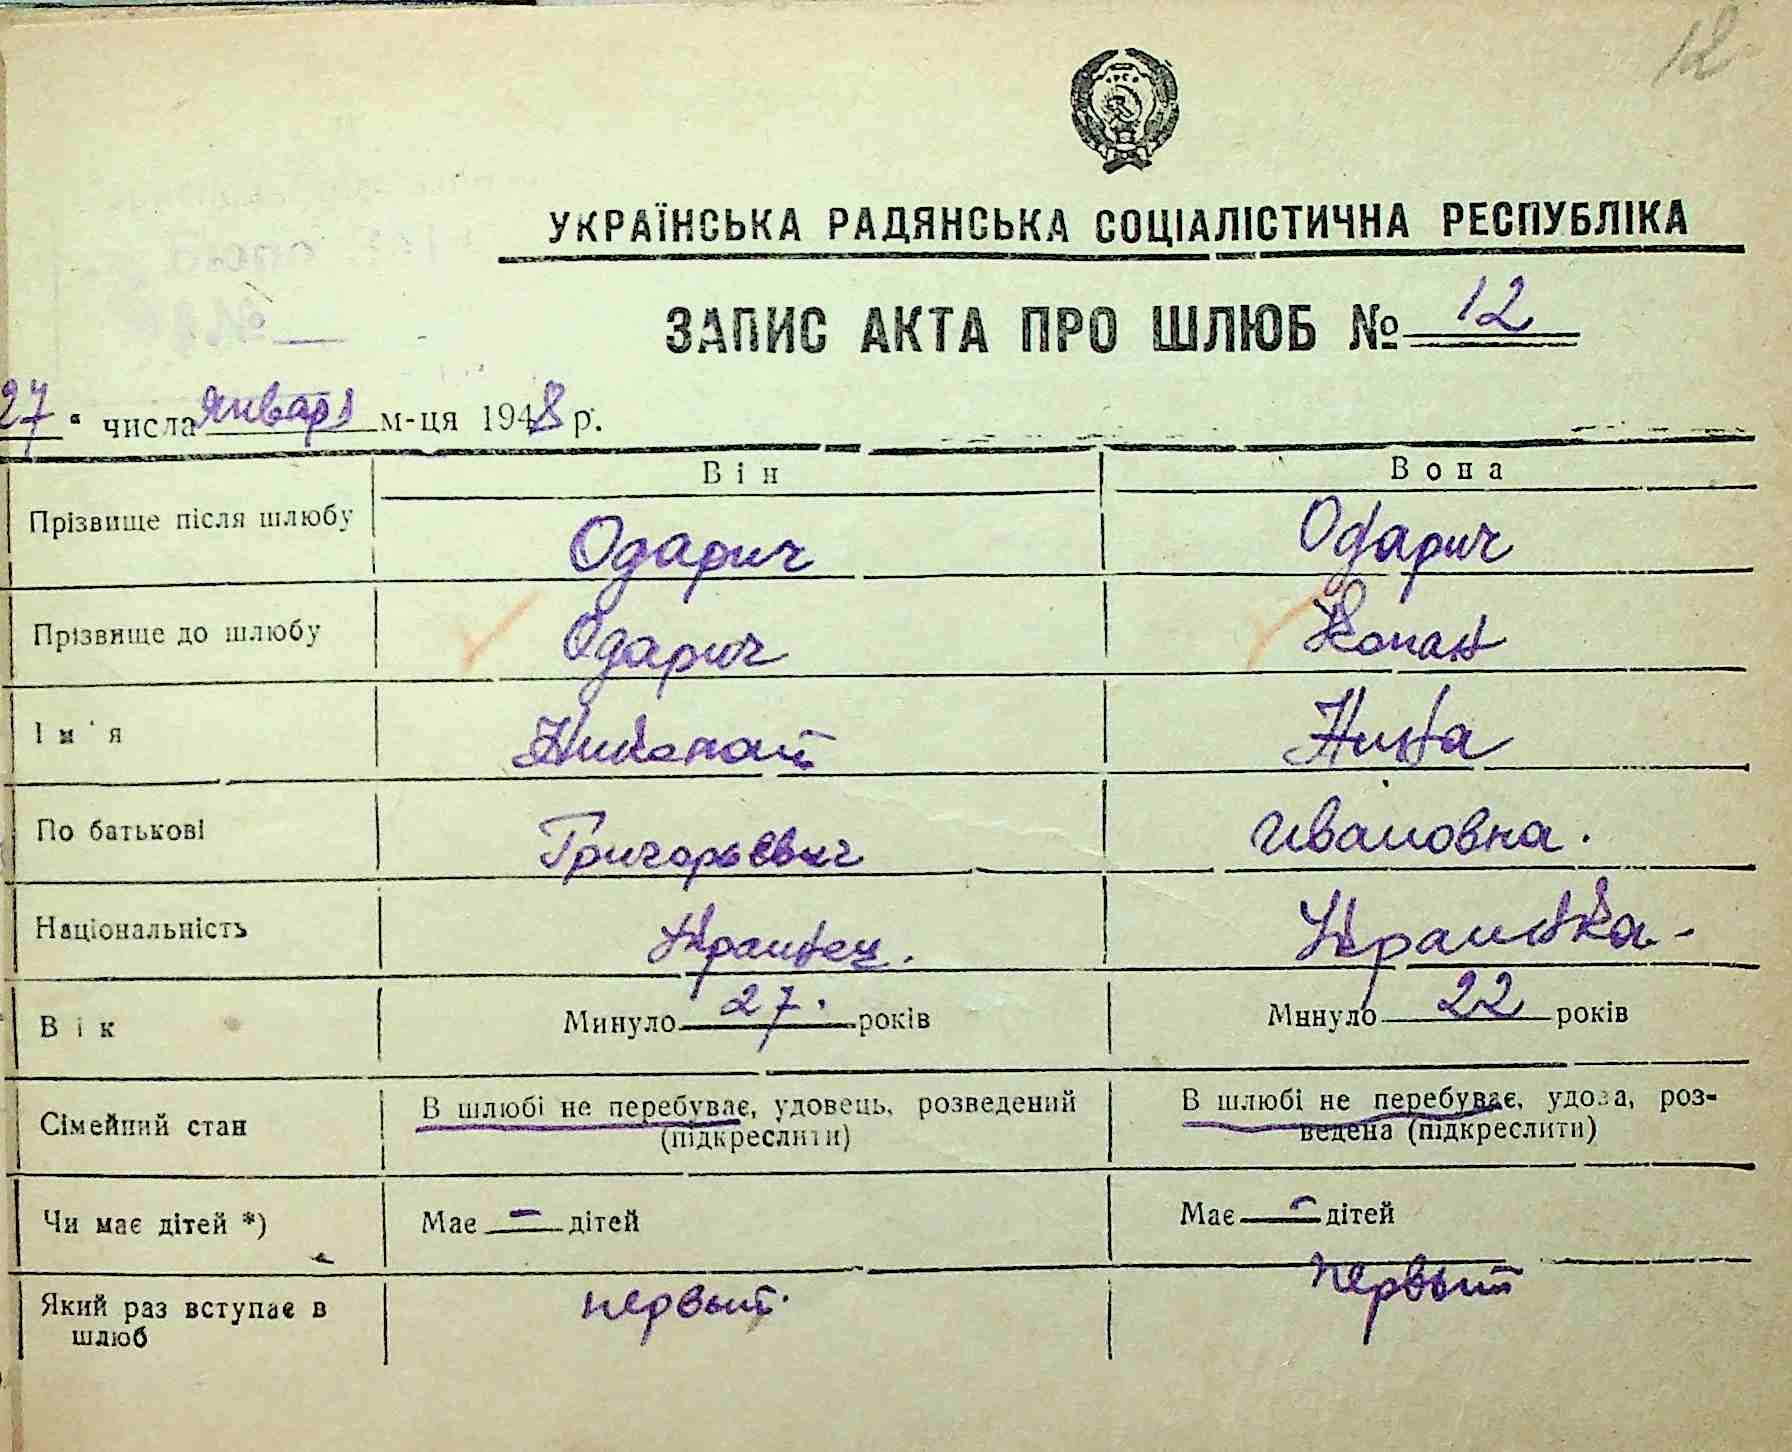 12
УКРАЇНСЬКА РАДЯНСЬКА СОЦІАЛІСТИЧНА РЕСПУБЛІКА
ЗАПИС АКТА ПРО ШЛЮБ № 12
27 " числа января м-ця 1948 р.
Він Вона
Прізвище після шлюбу Одарич Одарич
Прізвище до шлюбу Одарич Копан
Ім'я Николай Нина
По батькові Григорьевич Ивановна.
Національність Украинец. Украинка-
Вік Минуло 27. років Минуло 22 років
Сімейний стан В шлюбі не перебуває, удовець, розведений В шлюбі не перебуває, удова, роз-
(підкреслити) ведена (підкреслити)
Чи має дітей *) Має - дітей Має - дітей
Який раз вступає в первый. первый
шлюб